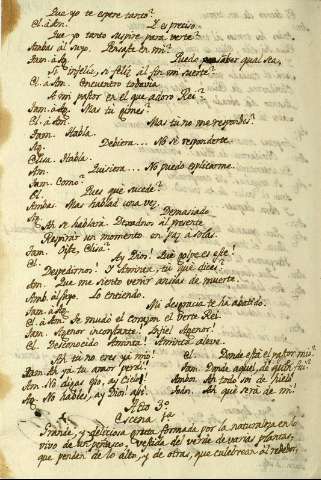 Que yo te espere tanto?
Cl. á Am. Es preciso.
Que yo tanto suspire para verte?
Ambas al suyo. Pensaste en mi?
Tam. á Ag. Puedo saber qual sea,
Si infeliz, si feliz al fin mi suerte?
Cl. á Am. Encuentro todavia
A mi pastor en el que adoro Rei?
Tam. á Ag. Mas tu gimes?
Cl. á Am. Mas tu no me respondes?
Tam. Habla.
Ag. Debiera... No sé responderte.
Elisa. Habla.
Am. Quisiera... No puedo explicarme.
Tam. Como?
El. Pues qué sucede?
Ambas. Mas hablad una vez.
Ag. Demasiado
Ah se hablará. Dexadnos al presente
Respirar un momento en paz á solas.
Tam. Oiste, Elisa?
El. Ay Dios! Qué golpe es este!
Dexadnos! I Aminta, tu qué dices?
Am. Que me siento venir ansias de muerte!
Amb. al suyo. Lo entiendo.
Tam. á Ag. Mi desgracia te ha abatido.
El. á Am. Se mudó el corazon el verte Rei.
Tam. Agenor inconstante! Infiel Agenor!
El. Desconocido Aminta! Aminta aleve.
Ag. Ah tu no eres ya mio! El. Donde está el pastor mio?
Tam. Ah yá tu amor perdi! Tam. Donde aquel de quien fui?
Am. No digas eso, ay Cielo! Ambos. Ah todo soi de hielo!
Ag. No hables, ay Dios! asi. Todos. Ah qué será de mi!
Acto 3º
Escena 1ª
Grande, y deliciosa gruta formada por la naturaleza en lo
vivo de un peñasco, vestida del verde de varias plantas,
que penden de lo alto, y de otras, que culebrean al rededor,